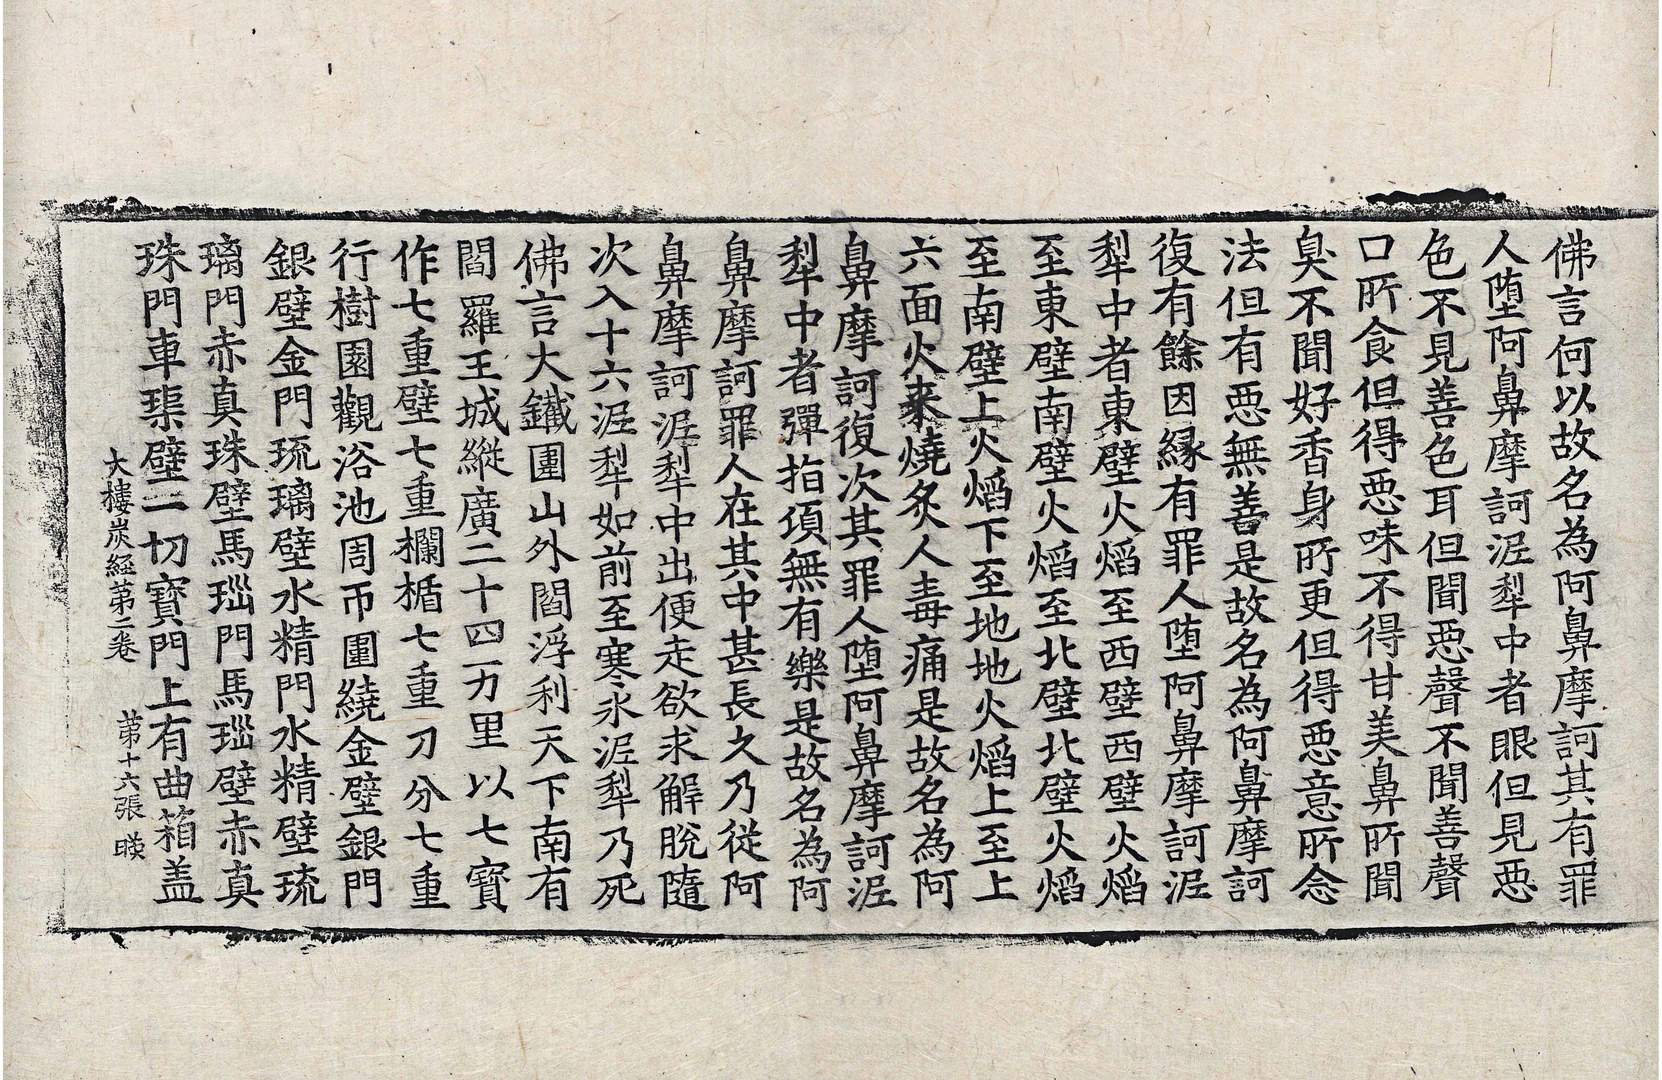 佛言何以故名為阿鼻摩訶其有罪
人堕阿鼻摩訶泥犁中者眼但見惡
色不見善色耳但聞惡聲不聞善聲
口所食但得惡味不得甘美鼻所聞
臭不聞好香身所更但得惡意所念
法但有惡無善是故名為阿鼻摩訶
復有餘因縁有罪人堕阿鼻摩訶泥
犁中者東壁火焰至西壁西壁火焰
至東壁南壁火焰至北壁北壁火焰
至南壁上火焰下至地地火焰上至上
六面火来燒炙人毒痛是故名為阿
鼻摩訶復次其罪人堕阿鼻摩訶泥
犁中者彈指頃無有樂是故名為阿
鼻摩訶罪人在其中甚長久乃從阿
鼻摩訶泥犁中出便走欲求解脫隨
次入十六泥犁如前至寒氷泥犁乃死
佛言大鐵圍山外閻浮利天下南有
閻羅王城縱廣二十四万里以七寶
作七重壁七重欄楯七重刀分七重
行樹園觀浴池周帀圍繞金壁銀門
銀壁金門琉璃壁水精門水精壁琉
璃門赤真珠壁馬瑙門馬瑙壁赤真
珠門車璖壁一切寶門上有曲箱盖
大樓炭經第二卷 第十六張 暎